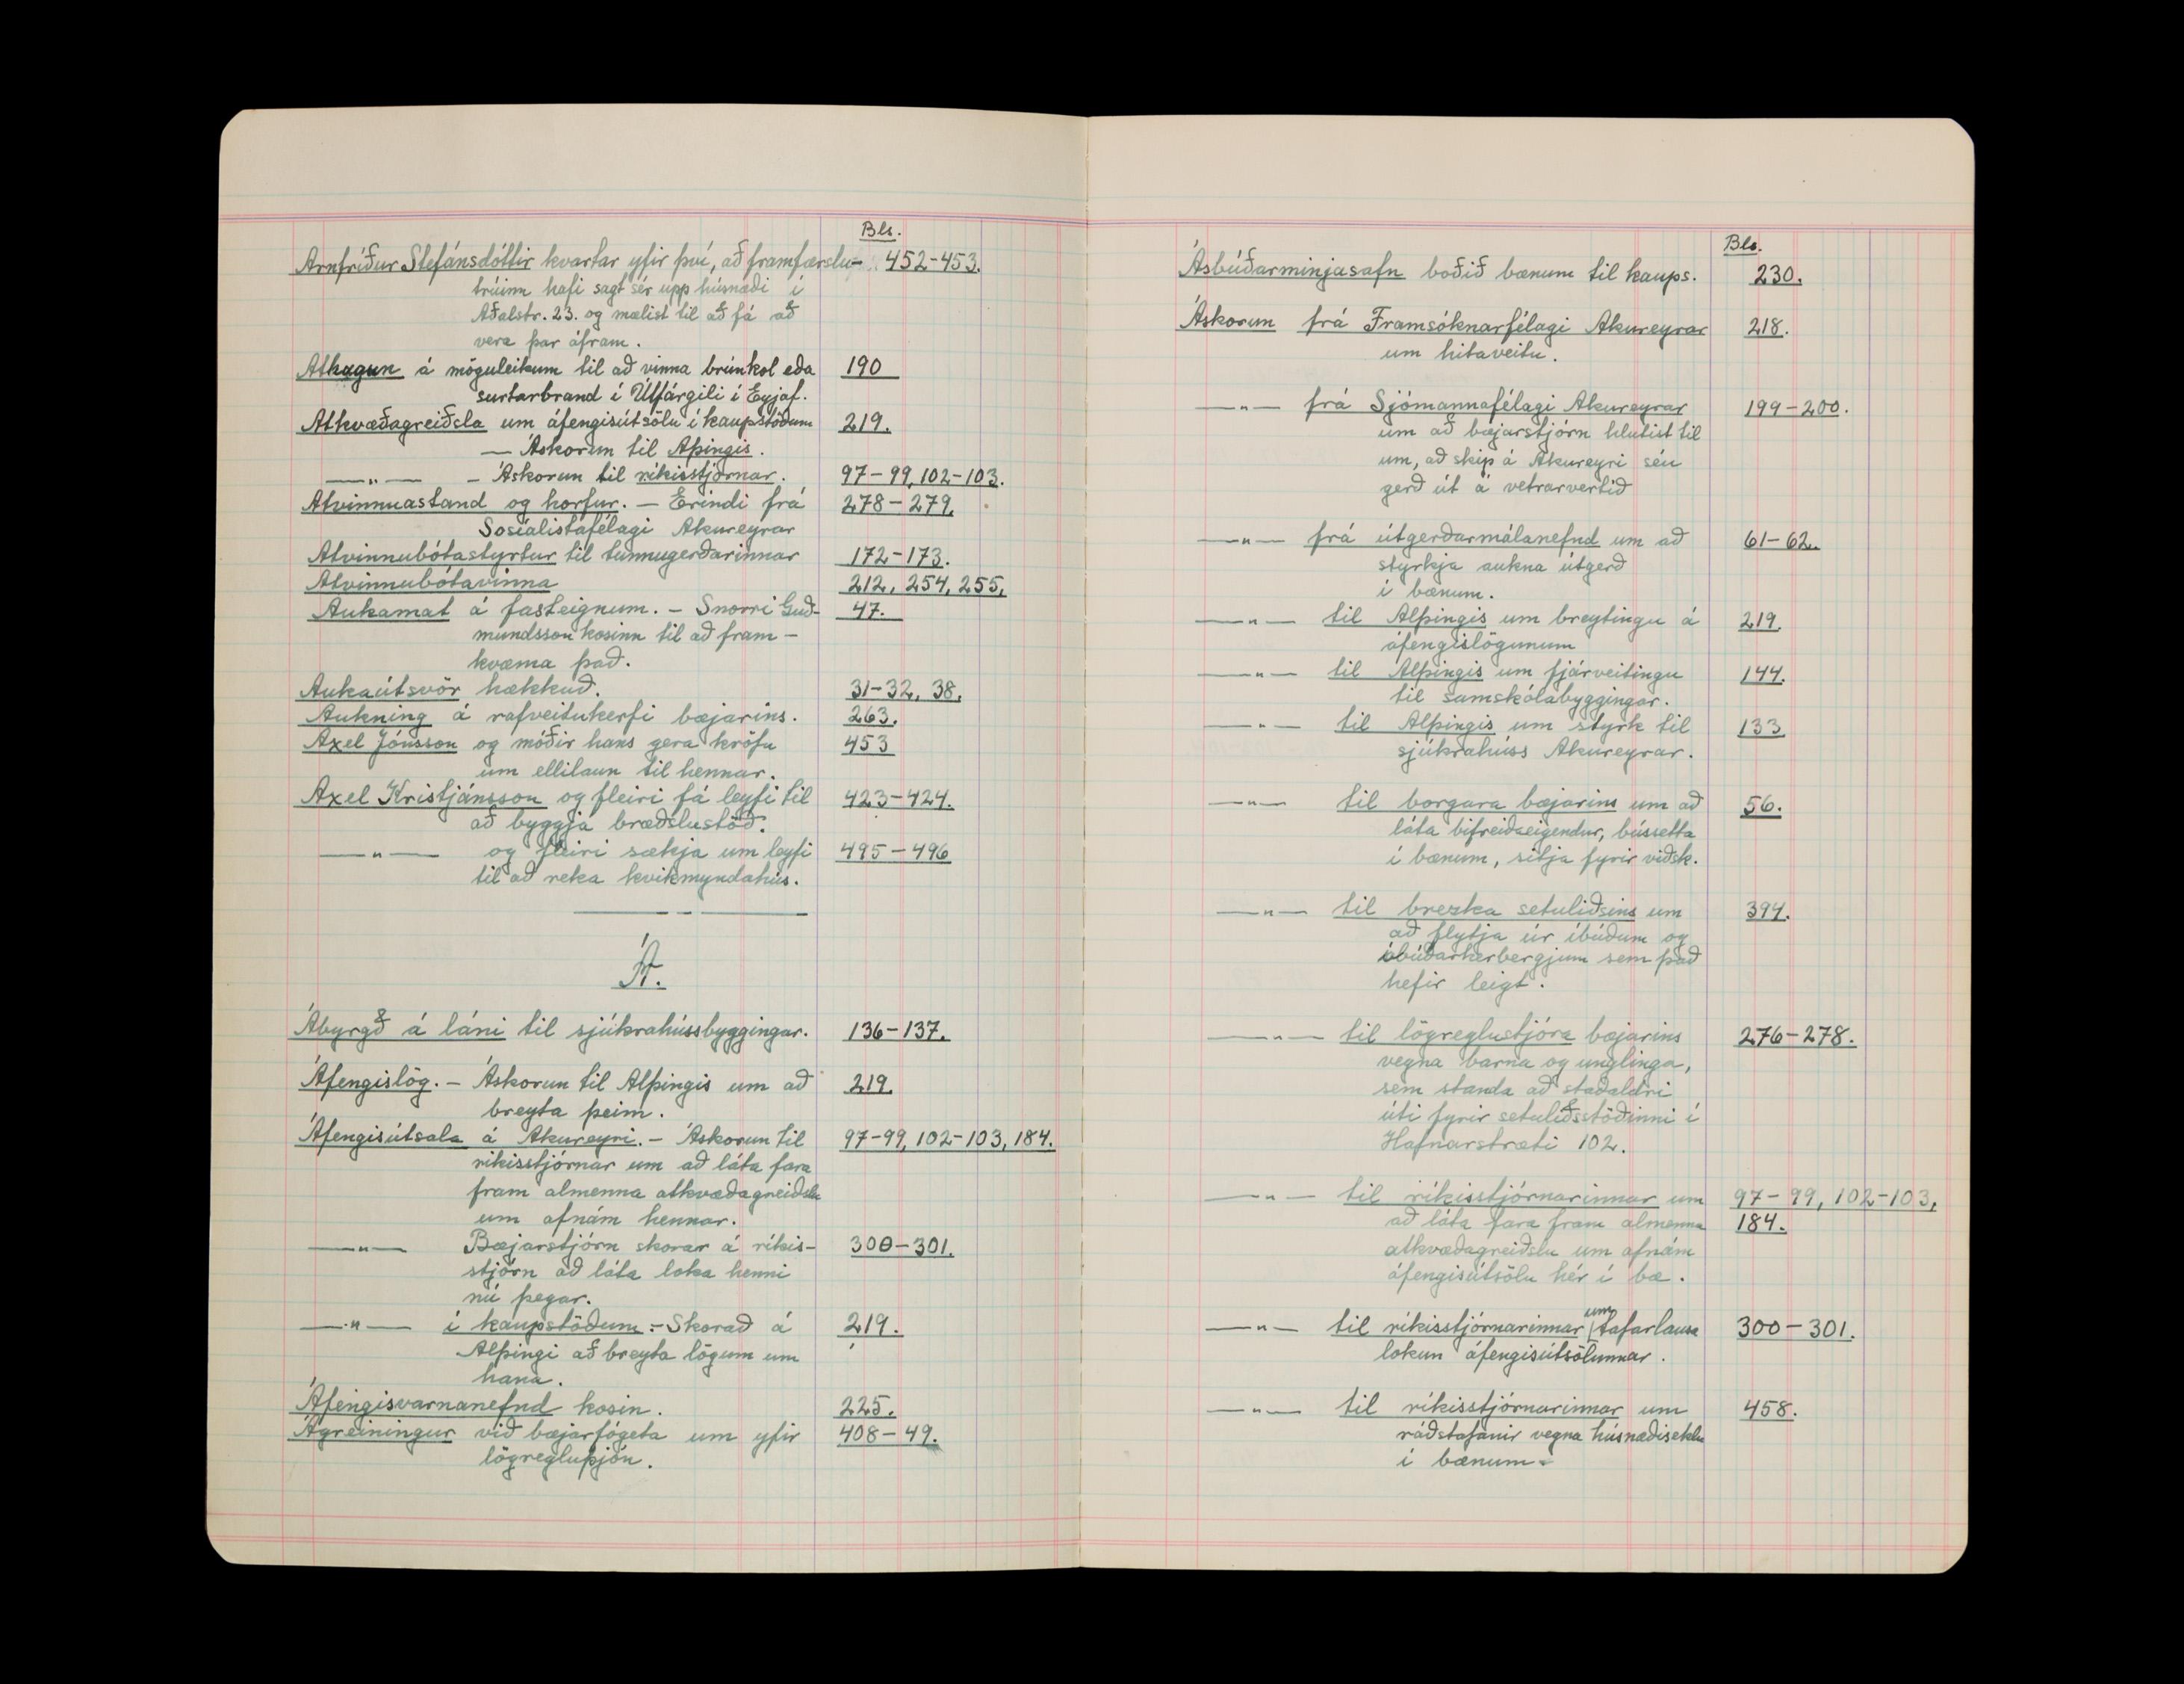 Bls.
Arnfríður Stefánsdóttir kvartar yfir því, að framfærslu- 452-453.
trúinn hafi sagt sér upp húsnæði í
Aðalstr. 23. og mælist til að fá að
vera þar áfram.
Athugun á möguleikum til að vinna brúnkol eða 190
surtarbrand í Úlfárgili í Eyjaf.
Atkvæðagreiðsla um áfengisútsölu í kaupstöðum 219.
— Áskorun til Alþingis.
—„— - Áskorun til ríkisstjórnar. 97-99, 102-103.
Atvinnuástand og horfur. - Erindi frá 278-279.
Sosíalistafélagi Akureyrar
Atvinnubótastyrkur til tunnugerðarinnar 172-173.
Atvinnubótavinna 212, 254, 255,
Aukamat á fasteignum. - Snorri Guð- 47.
mundsson kosinn til að fram-
kvæma það.
Aukaútsvör hækkuð. 31-32, 38,
Aukning á rafveitukerfi bæjarins. 263.
Axel Jónsson og móðir hans gera kröfu 453
um ellilaun til hennar.
Axel Kristjánsson og fleiri fá leyfi til 423-424.
að byggja bræðslustöð.
—„— og fleiri sækja um leyfi 495-496
til að reka kvikmyndahús.
Á.
Ábyrgð á láni til sjúkrahússbyggingar. 136-137.
Áfengislög. - Áskorun til Alþingis um að 219.
breyta þeim.
Áfengisútsala á Akureyri. - Áskorun til 97-99, 102-103, 184.
ríkisstjórnar um að láta fara
fram almenna atkvæðagreiðslu
um afnám hennar.
—„— Bæjarstjórn skorar á ríkis- 300-301.
stjórn að láta loka henni
nú þegar.
—„— í kaupstöðum. - Skorað á 219.
Alþingi að breyta lögum um
hana.
Áfengisvarnanefnd kosin. 225.
Ágreiningur við bæjarfógeta um yfir 408-49.
lögregluþjón.
Bls.
Ásbúðarminjasafn boðið bænum til kaups. 230.
Áskorun frá Framsóknarfélagi Akureyrar 218.
um hitaveitu.
—„— frá Sjómannafélagi Akureyrar 199-200.
um að bæjarstjórn hlutist til
um, að skip á Akureyri séu
gerð út á vetrarvertíð
—„— frá útgerðarmálanefnd um að 61-62.
styrkja aukna útgerð
í bænum.
—„— til Alþingis um breytingu á 219.
áfengislögunum
—„— til Alþingis um fjárveitingu 144.
til samskólabyggingar.
—„— til Alþingis um styrk til 133
sjúkrahúss Akureyrar.
—„— til borgara bæjarins um að 56.
láta bifreiðaeigendur, bússetta
í bænum, sitja fyrir viðsk.
—„— til brezka setuliðsins um 394.
að flytja úr íbúðum og
íbúðarherbergjum sem það
hefir leigt.
—„— til lögreglustjóra bæjarins 276-278.
vegna barna og unglinga,
sem standa að staðaldri
úti fyrir setuliðsstöðinni í
Hafnarstræti 102.
—„— til ríkisstjórnarinnar um 97-99, 102-103,
að láta fara fram almenna 184.
atkvæðagreiðslu um afnám
áfengisútsölu hér í bæ.
—„— til ríkisstjórnarinnar um tafarlausa 300-301.
lokun áfengisútsölunnar.
—„— til ríkisstjórnarinnar um 458.
ráðstafanir vegna húsnæðiseklu
í bænum.